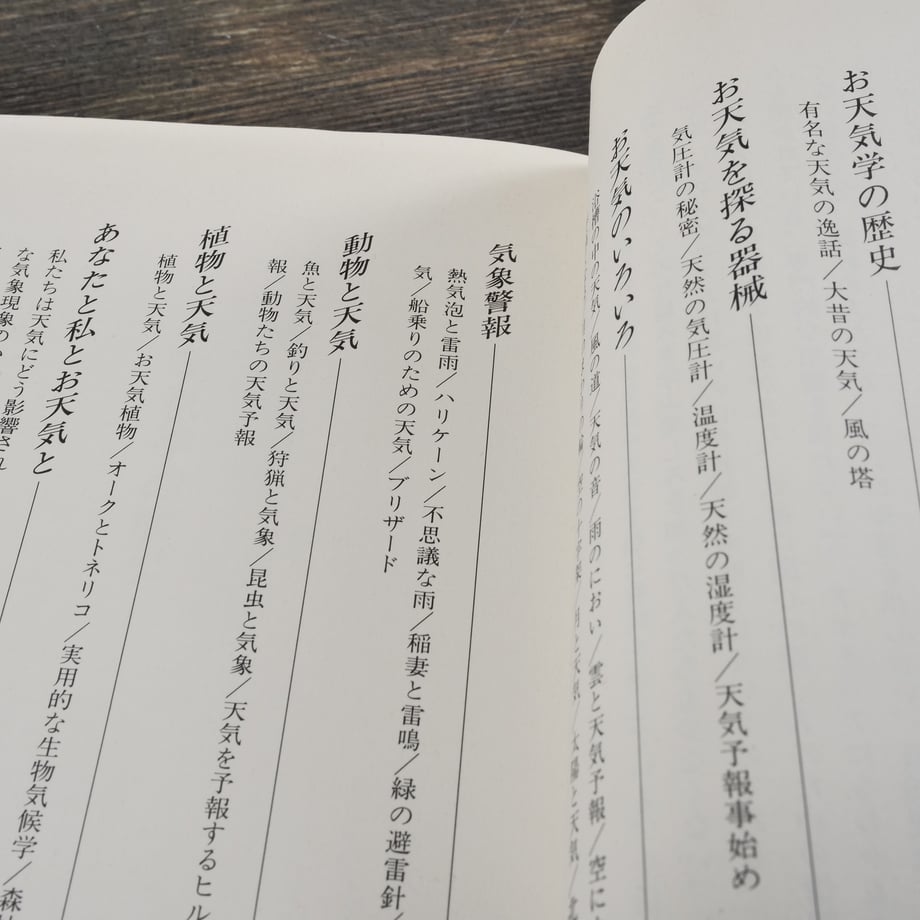 お天気学の歴史
有名な天気の逸話/大昔の天気/風の塔
お天気を探る器械
気圧計の秘密/天然の気圧計/温度計/天然の湿度計/天気予報事始め
お天気のいろいろ
の中の天気/風の道/天気の音/雨のにおい/雲と天気予報/空に
月と天気/太陽と天気/
気象警報
熱気泡と雷雨/ハリケーン/不思議な雨/稲妻と雷鳴/緑の避雷針/
気/船乗りのための天気/ブリザード
動物と天気
魚と天気/釣りと天気/狩猟と気象/昆虫と気象/天気を予報するヒル
報/動物たちの天気予報
植物と天気
植物と天気/お天気植物/オークとトネリコ/実用的な生物気候学/森
あなたと私とお天気と
私たちは天気にどう影響され
な気象現象の